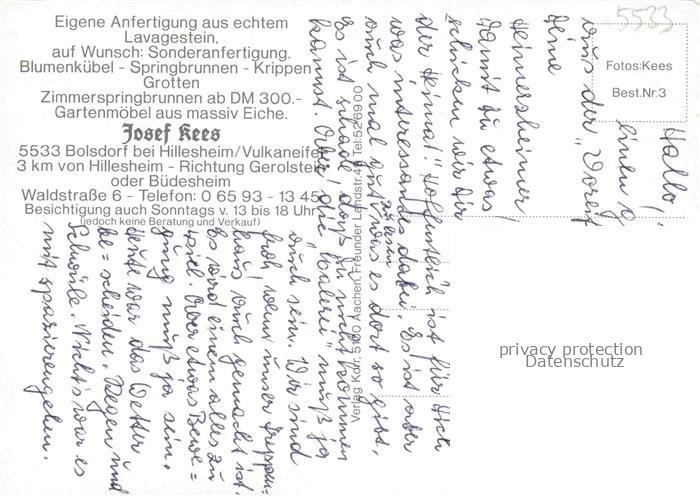 Eigene Anfertigung aus echtem
Lavagestein,
auf Wunsch: Sonderanfertigung.
Blumenkübel - Springbrunnen - Krippen
Grotten
Zimmerspringbrunnen ab DM 300.-
Gartenmöbel aus massiv Eiche.
Josef Kees
5533 Bolsdorf bei Hillesheim/Vulkaneifel
3 km von Hillesheim - Richtung Gerolstein
oder Büdesheim
Waldstraße 6 - Telefon: 0 65 93 - 13 45
Besichtigung auch Sonntags v. 13 bis 18 Uhr
(jedoch keine Beratung und Verkauf)
Verlag Korr, 5100 Aachen, Freunder Landstr. Tel: 526900
5533
Fotos: Kees
Best.Nr.3
Hallo,
einen
aus der "Voreif
Deine
Heimerzheimer
Damit Du etwas
schicken wir Dir
der Heimat". Hoffentlich ist für Dich
was interessantes dabei. Es ist aber
auch mal gut zu lesen was es dort so gibt.
Es ist schade, daß Du nicht kommen
kannst. Aber die "Malerei" muß ja
auch sein. Wir sind
froh, wenn unser Treppen=
haus auch gemacht ist.
Es wird einem alles zu
viel. Aber etwas Bewe=
gung muß ja sein.
Heute war das Wetter
be=scheiden. Regen und
Schwüle. Nichts war es
mit spazierengehen.
privacy protection
Datenschutz